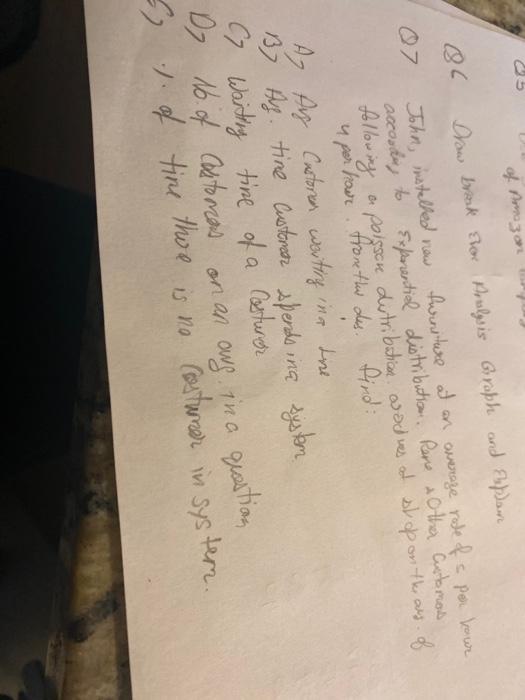 Q5
of Amazon
Q6 Draw break Even Analysis Graph and Explain
Q7 John, installed new furniture at an average rate of 5 per hour
according to Exponential distribution. Rene & Other Customers
following a poisson distribution at shop on the avg. of
4 per hour. from the dis. find:
A> Avg Customer waiting in a line
B> Avg. time Customer spends in a system
C> Waiting time of a Costumer
D> No. of Customers on an avg. in a question
E> %. of time there is no Costumer in system.